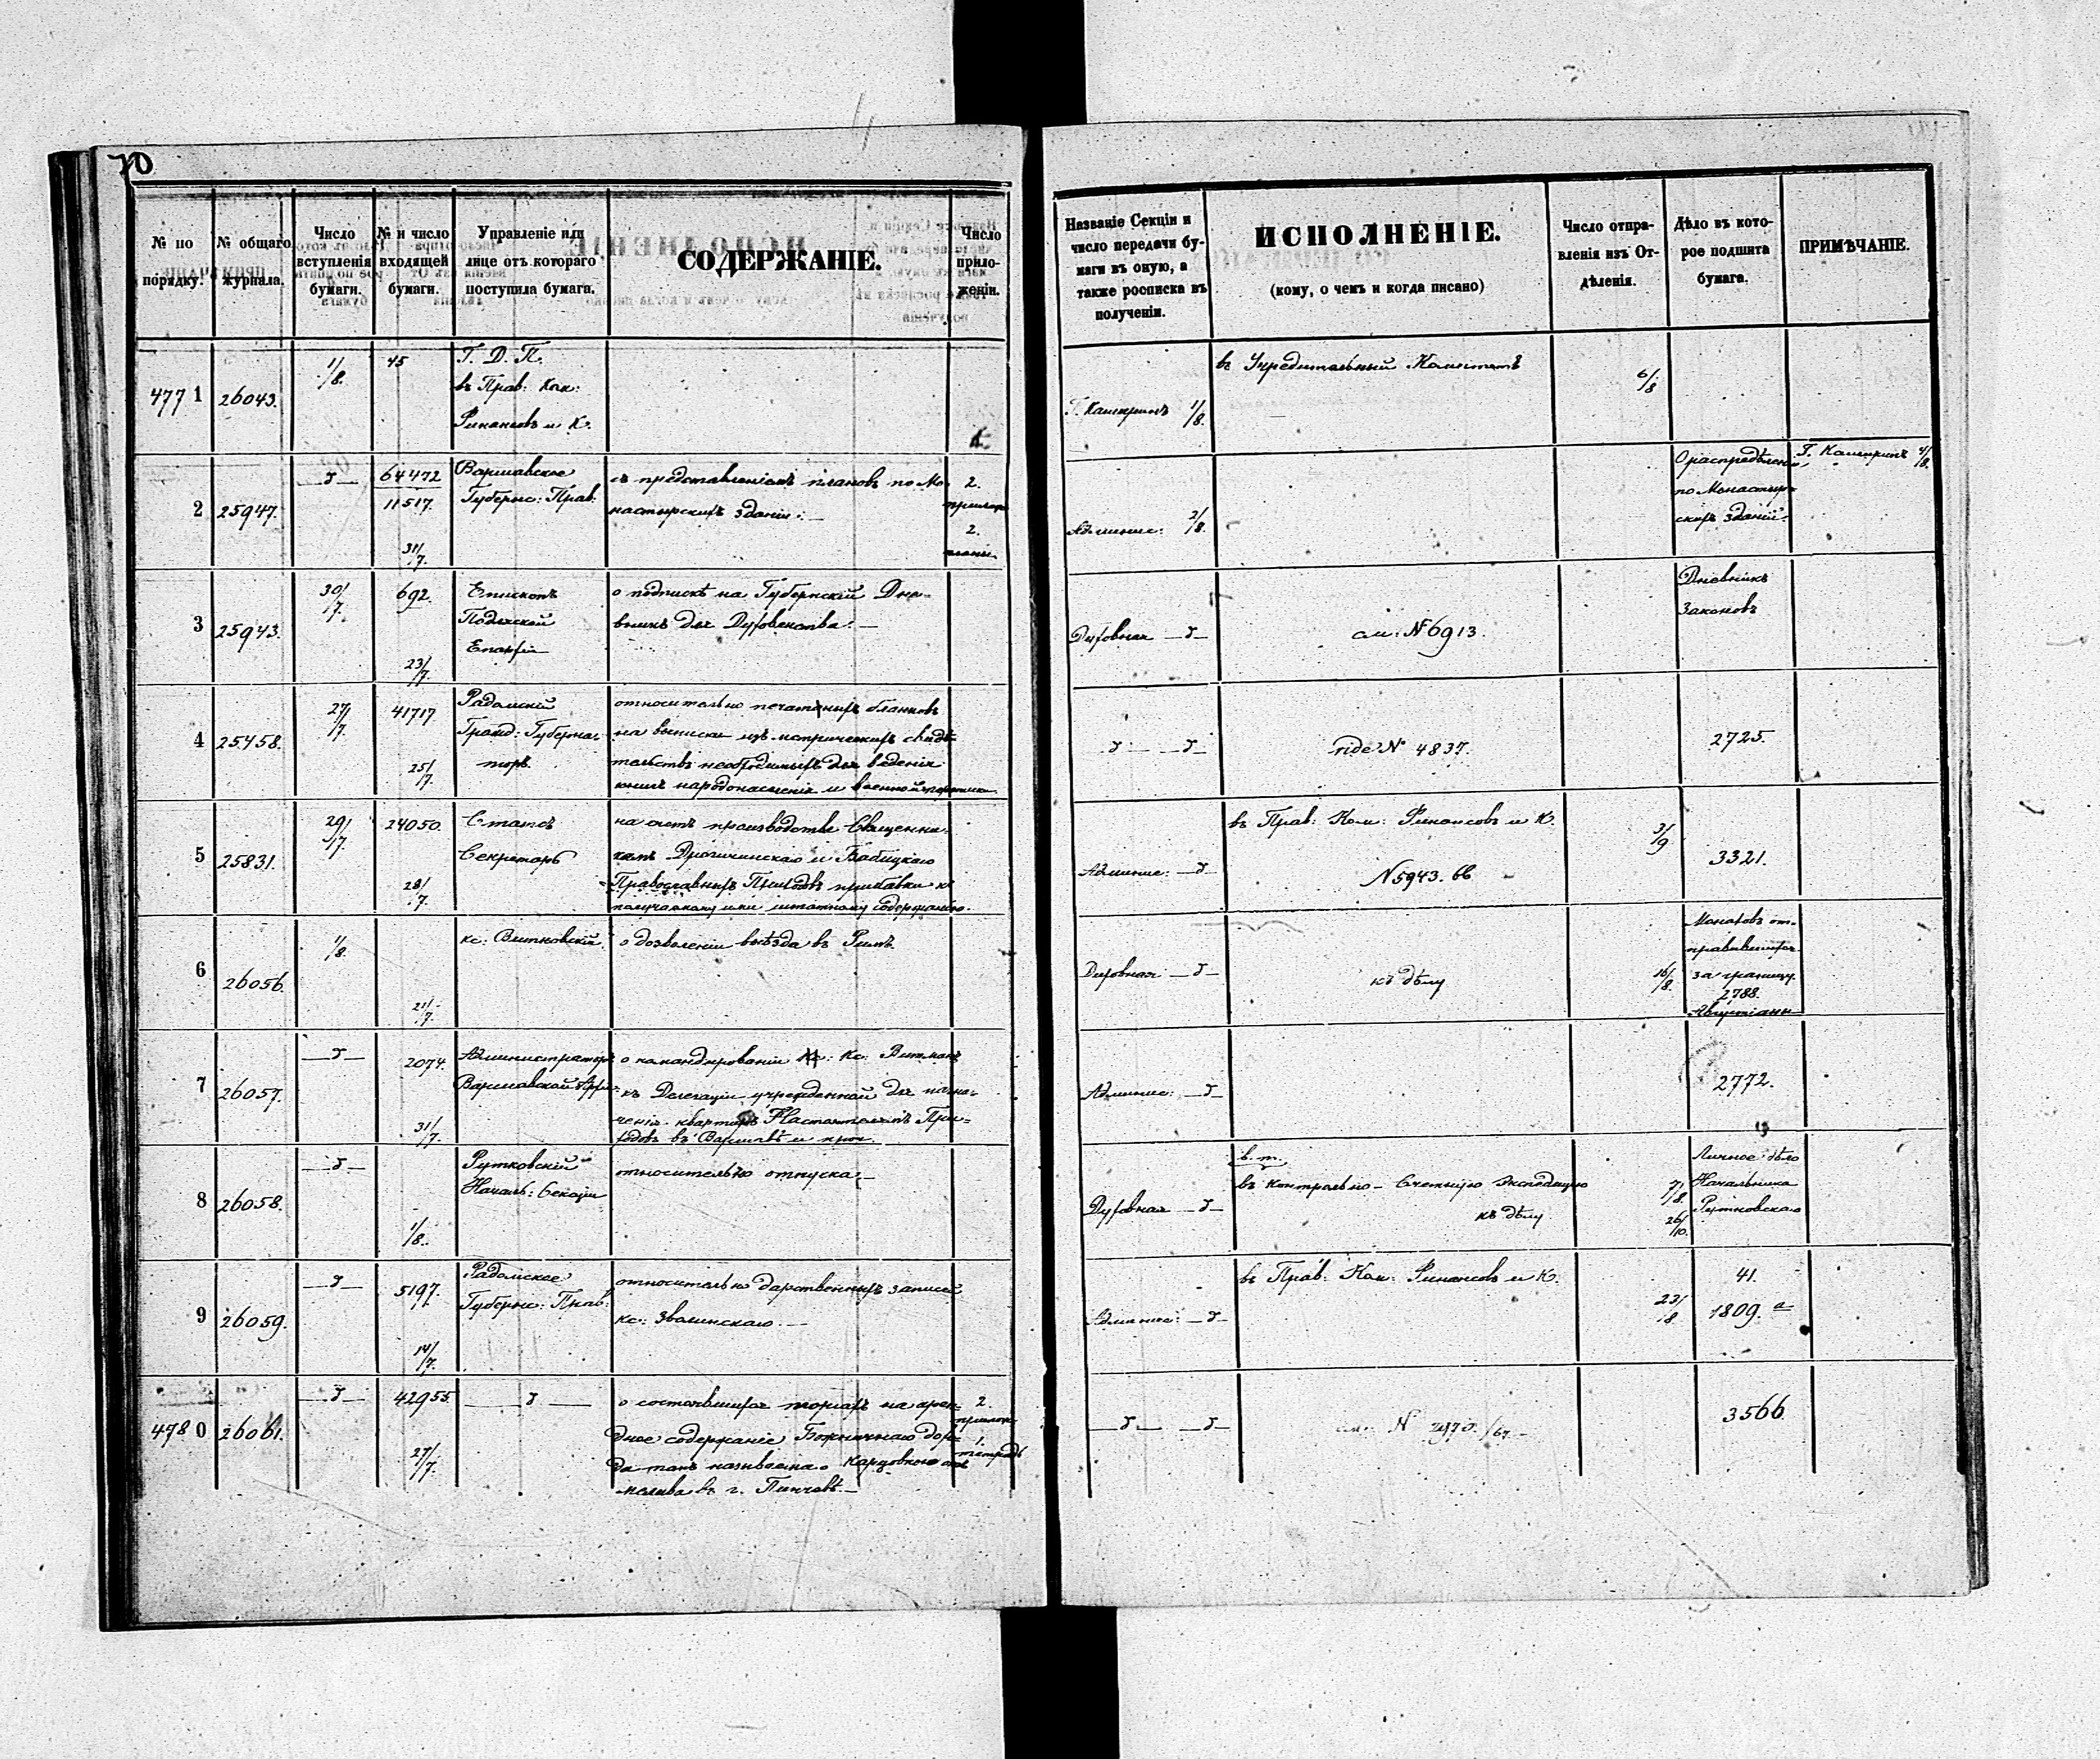 70
№ по порядку.
№ общаго журнала.
Число вступленія бумаги.
№ и число входящей бумаги.
Управленіе или лице отъ котораго поступила бумага.
СОДЕРЖАНІЕ.
Число приложеній.
Названіе Секціи и число передачи бумаги въ оную, а также росписка въ полученіи.
ИСПОЛНЕНІЕ.
(кому, о чемъ и когда писано)
Число отправленія изъ Отдѣленія.
Дѣло въ которое подшита бумага.
ПРИМѢЧАНІЕ.
4771 26043. 1/8. 45 Г. Д. П.
въ Прав: Ком:
Финансовъ и К.
Г. Кашкринъ 1/8. въ Учредительный Комитетъ 6/8
2 25947. 64472 11517. 31/7. Варшавское
Губернс: Прав:
съ представленіемъ плановъ по Мо-
настырскихъ зданій.
2.
2.
планы.
Админис: 2/8.
О распредѣленіи
по Монастыр-
скихъ зданій.
Г. Кашкринъ 4/8.
3 25943. 30/7. 692. 23/7. Епископъ
Подляской
Епархіи
о подпискѣ на Губернскій Дне-
вникъ для Духовенства.
Духовная
см: № 6913.
Дневникъ
Законовъ
4 25458. 27/7. 41717. 25/7. Радомскій
Гражд: Губерна-
торъ.
относительно печатныхъ бланковъ
на выписки изъ метрическихъ свидѣ-
тельствъ необходимыхъ для веденія
книгъ народонаселенія и военной
vide № 4837.
2725.
5 25831. 29/7. 24050. 28/7. Статсъ
Секретарь
на счетъ производства Священни-
камъ Дрогичинскаго и Бабицкаго
Православныхъ Приходовъ прибавки къ
получаемому ими штатному содержанію.
Админис:
въ Прав: Ком: Финансовъ и К.
№ 5943. бб
3/9
3321.
6 26056. 1/8. 21/7. кс: Витковскій
о дозволеніи выѣзда въ Римъ.
Духовная
къ дѣлу
16/8.
Монаховъ от-
правившихся
за границу.
2788.
Августіаны
7 26057. 2074. 31/7. Администраторъ
Варшавской Архи:
о командированіи Кс: Витмана
къ Делегаціи учрежденной для назна-
ченія квартиръ Настоятелямъ При-
ходовъ въ Варшавѣ и проч.
Админис:
2772.
8 26058. 1/8. Рутковскій
Началь: Секціи
относительно отпуска.
Духовная
в. т.
въ Контрольно-Счетную Экспедицію
къ дѣлу
7/8.
26/10.
Личное дѣло
Начальника
Рутковскаго
9 26059. 5197. 14/7. Радомское
Губернс: Прав:
относительно дарственныхъ записей
кс: Зволинскаго.
Админис:
въ Прав: Ком: Финансовъ и К.
23/8
41.
1809. а
4780 26061. 42955. 27/7.
о состоявшихся торгахъ на арен-
дное содержаніе Божничнаго дохо-
да такъ называемаго Карцовнаго отъ
молива въ г. Пинчовѣ.
2.
прилож
1.
тетрадь
см: №
3566.